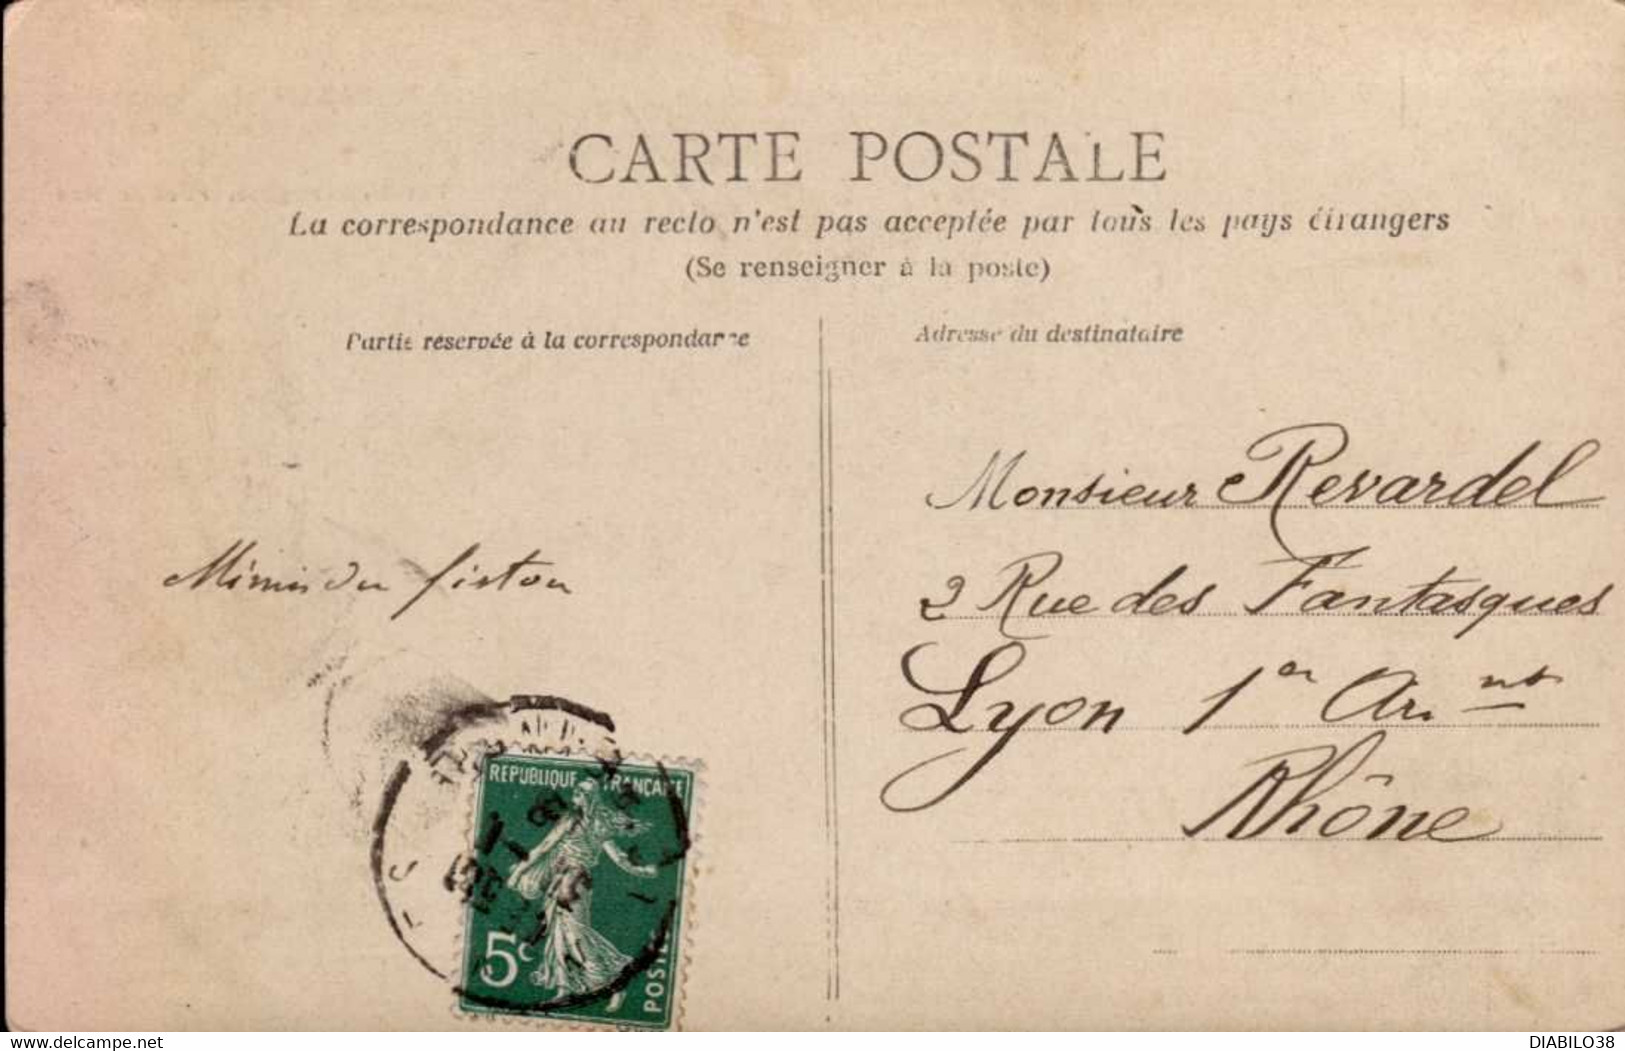 CARTE POSTALE
La correspondance au recto n'est pas acceptée par tous les pays étrangers
(Se renseigner à la poste)
Partie réservée à la correspondance
Adresse du destinataire
Monsieur Revardel
2 Rue des Fantasques
Lyon 1er Arr.nt
Rhône
Mimi du fiston
REPUBLIQUE FRANÇAISE
5c
POSTES
DIABILO38